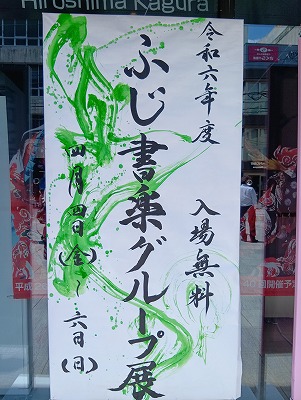 Hiroshima Kagura
令和六年度
ふじ書楽グループ展
入場無料
四月四日(金)〜六日(日)
回開催予定